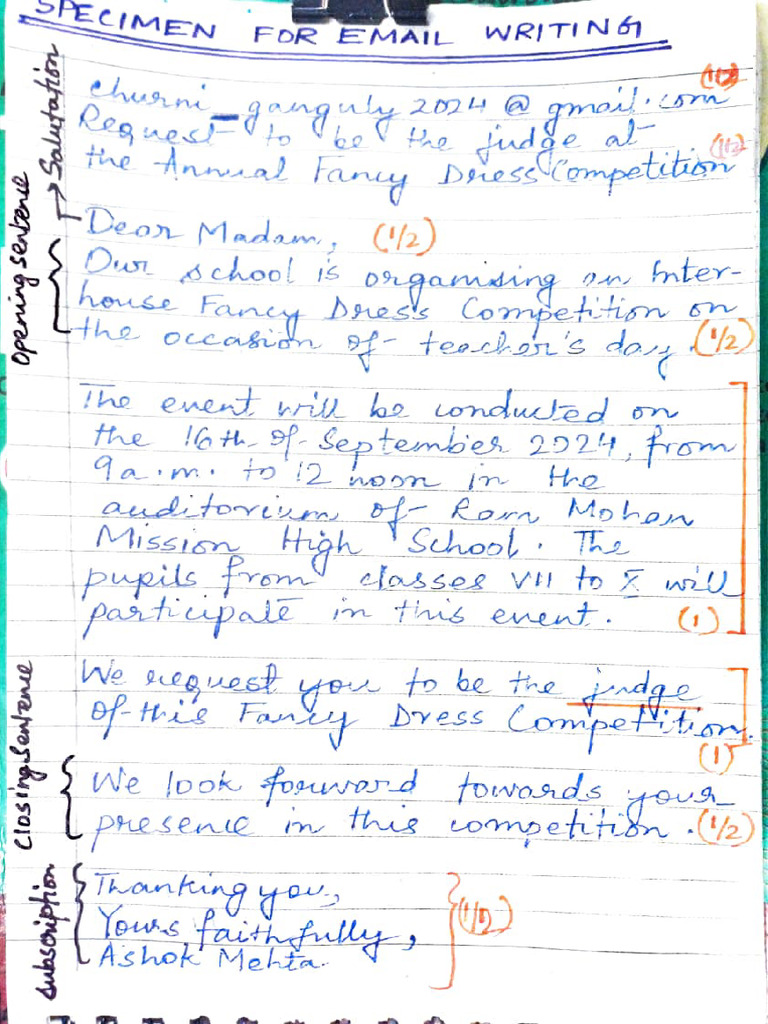 SPECIMEN FOR EMAIL WRITING
churni_ganguly2024@gmail.com (1/2)
Request to be the judge at
the Annual Fancy Dress Competition (1/2)
Salutation
Dear Madam, (1/2)
Opening sentence
Our school is organising an Inter-
house Fancy Dress Competition on
the occasion of teacher's day. (1/2)
The event will be conducted on
the 16th of September 2024, from
9a.m. to 12 noon in the
auditorium of Ram Mohan
Mission High School. The
pupils from classes VII to X will
participate in this event. (1)
We request you to be the judge
of this Fancy Dress Competition.
(1)
Closing sentence
We look forward towards your
presence in this competition. (1/2)
subscription
Thanking you,
Yours faithfully, (1/2)
Ashok Mehta.